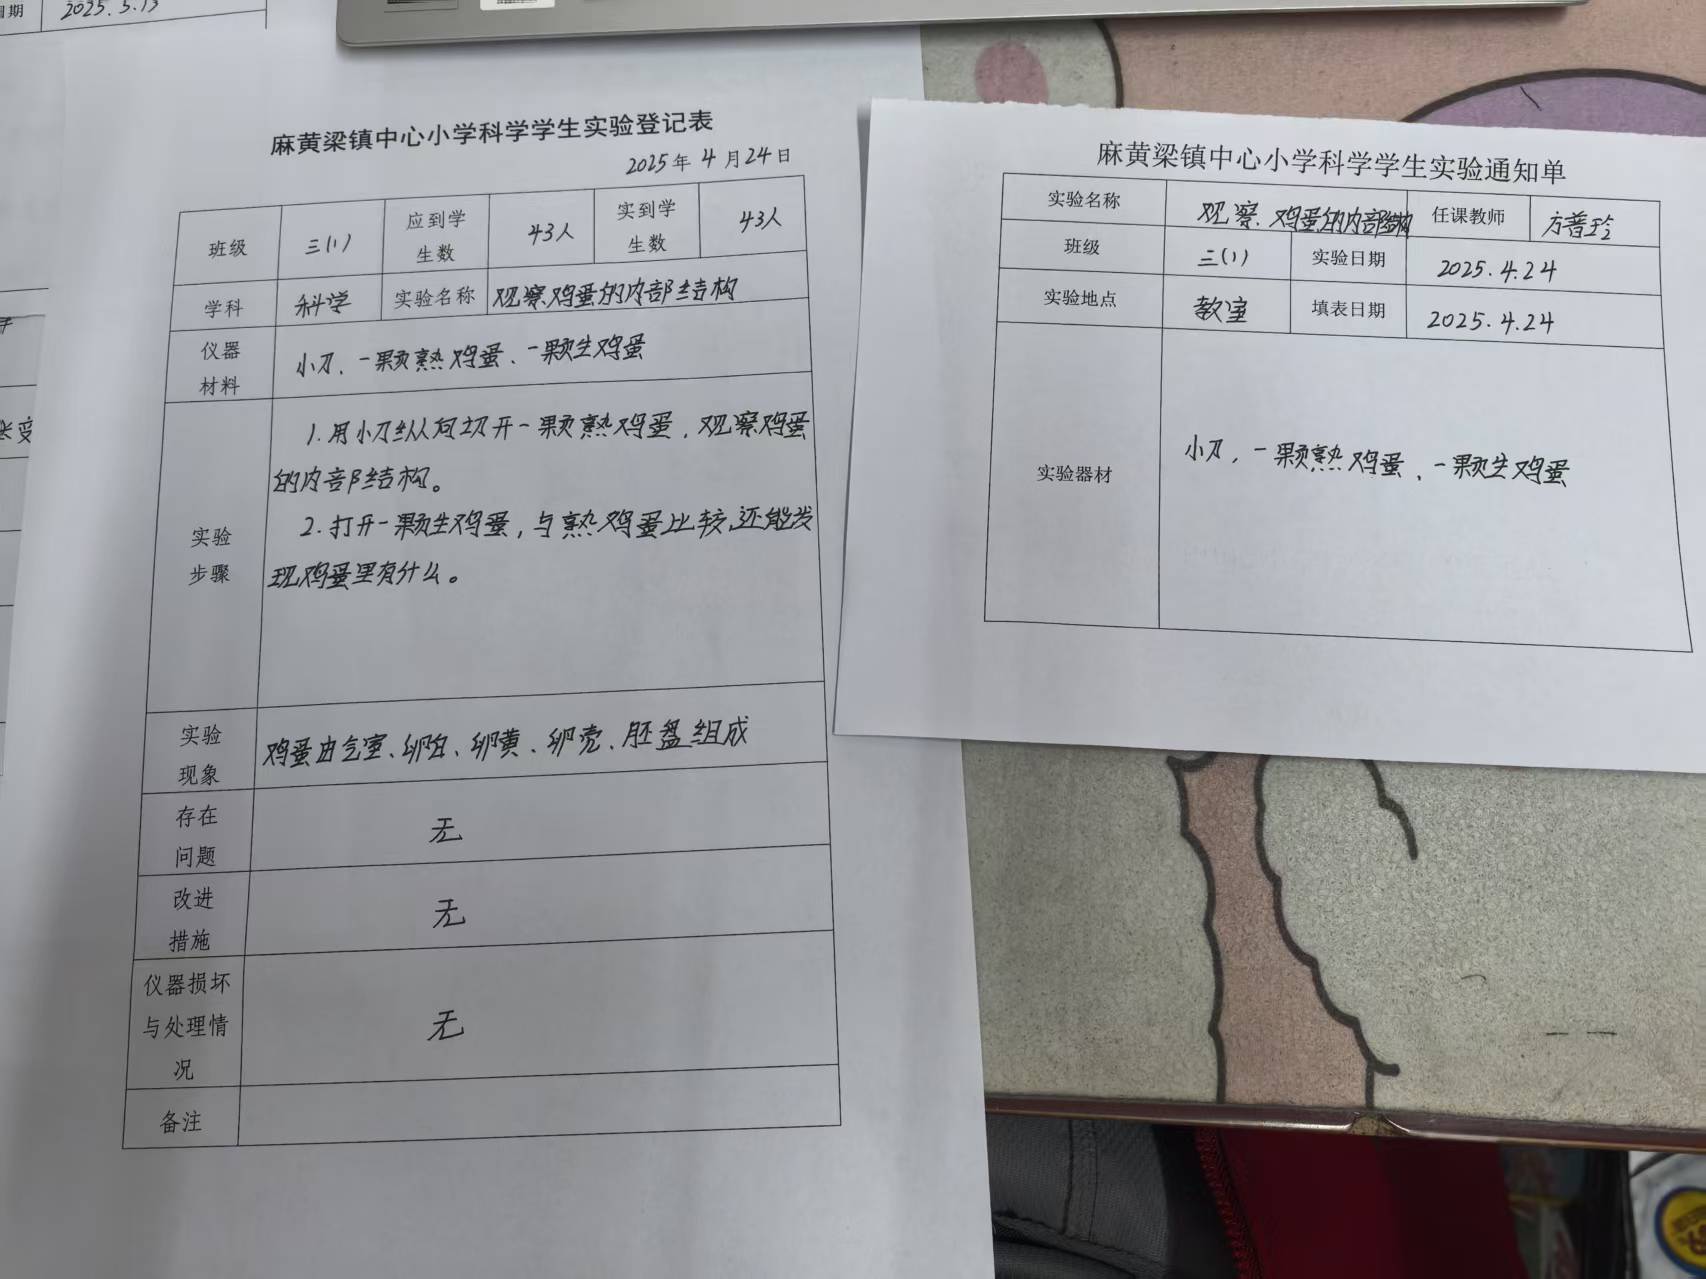 期 2025.5.13
麻黄梁镇中心小学科学学生实验登记表
2025年 4月24日
班级 三(1) 应到学生数 43人 实到学生数 43人
学科 科学 实验名称 观察鸡蛋的内部结构
仪器材料 小刀、一颗熟鸡蛋、一颗生鸡蛋
实验步骤
1.用小刀纵向切开一颗熟鸡蛋，观察鸡蛋
的内部结构。
2.打开一颗生鸡蛋，与熟鸡蛋比较,还能发
现鸡蛋里有什么。
实验现象 鸡蛋由气室、卵白、卵黄、卵壳、胚盘组成
存在问题 无
改进措施 无
仪器损坏与处理情况 无
备注
麻黄梁镇中心小学科学学生实验通知单
实验名称 观察鸡蛋的内部结构 任课教师 方普玲
班级 三(1) 实验日期 2025.4.24
实验地点 教室 填表日期 2025.4.24
实验器材 小刀，一颗熟鸡蛋、一颗生鸡蛋